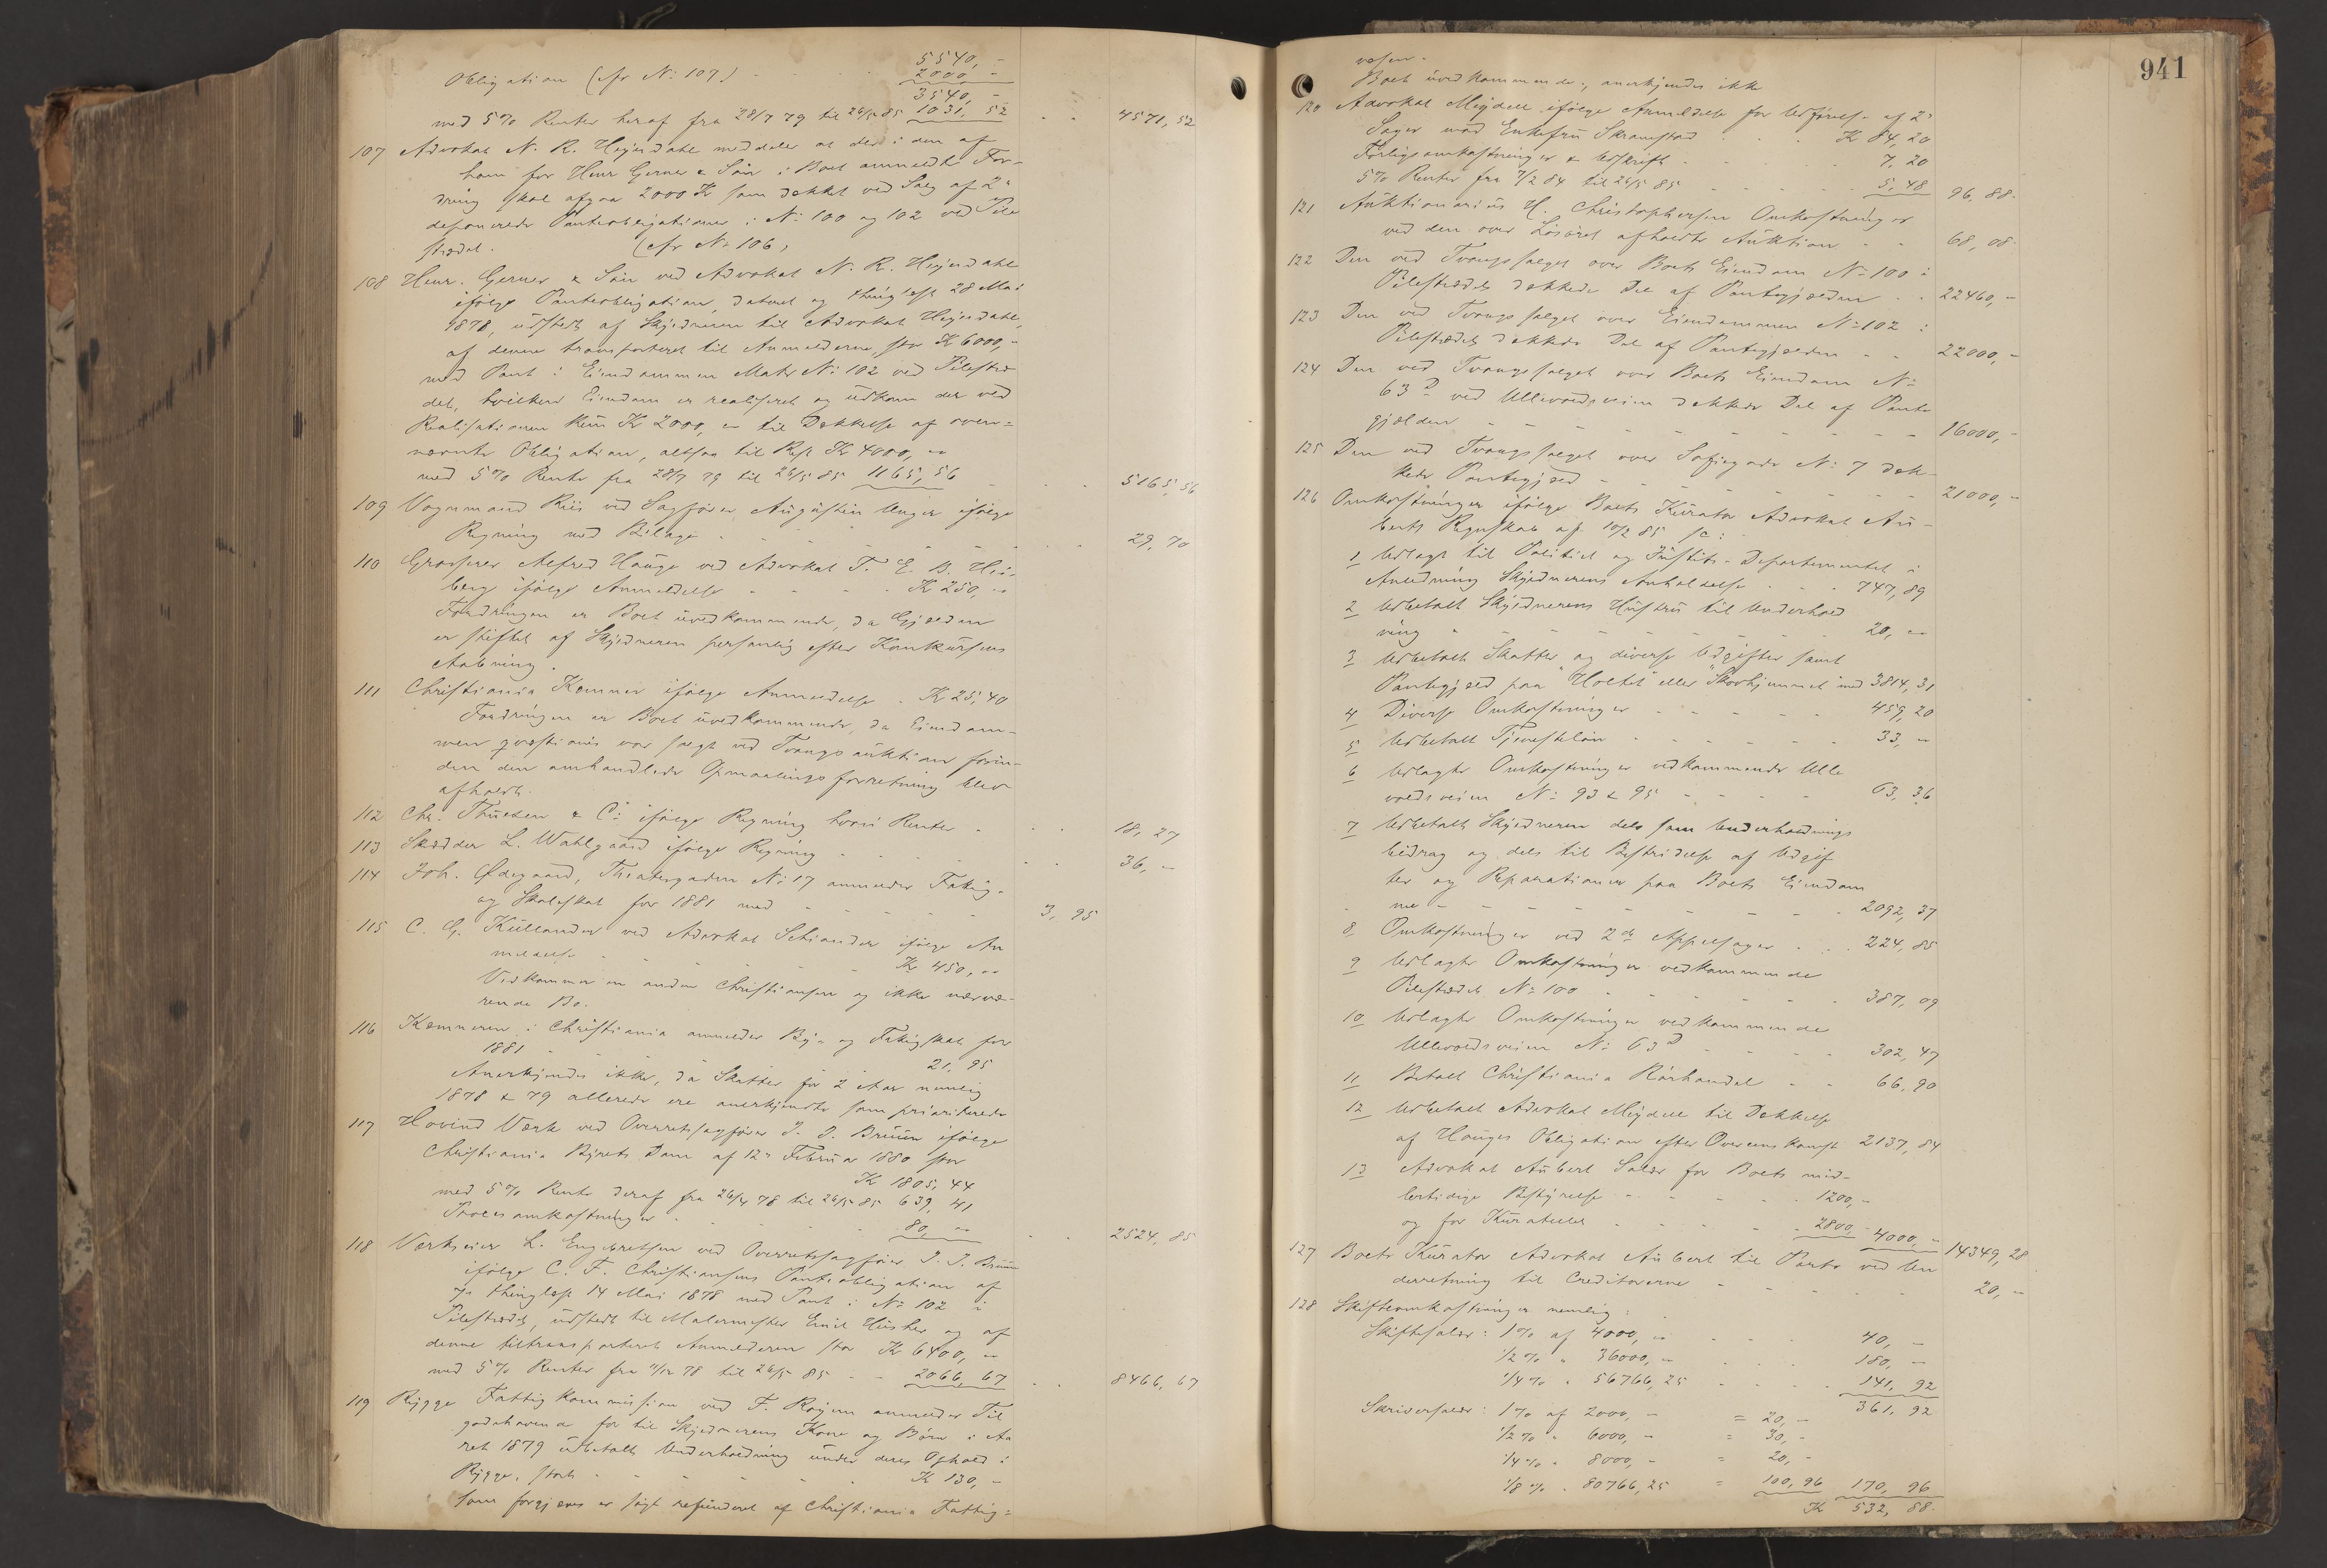 5540, -
Obligation (cfr No 107) - 2000 -
3540, -
med 5% Renter heraf fra 28/7 79 til 26/5 85 1031, 52 4571, 52
107 Advokat N. R. Heyerdahl meddeler at der i den af
ham for Henr Gerner & Søn i Boet anmeldte For-
dring skal afgaa 2000 Kr som dækket ved Salg af 2de
deponerede Panteobligationer i No 100 og 102 ved Pile
strædet. (cfr No 106)
108 Henr. Gerner & Søn ved Advokat N. R. Heyerdahl
ifølge Panteobligation, dateret og thinglæst 28 Mai
1878, udstedt af Skyldneren til Advokat Heyerdahl,
af denne transporteret til Anmelderne, stor Kr 6000, -
med Pant i Eiendommen Matr No 102 ved Pilestræ
det, hvilken Eiendom er realiseret og udkom der ved
Realisationen kun Kr 2000, - til Dækkelse af oven-
nævnte Obligation, altsaa til Rest Kr 4000, -
med 5% Rente fra 28/7 79 til 26/5 85 1165, 56 5165, 56
109 Vognmand Riis ved Sagfører Augustin Unger ifølge
Regning med Bilage 29, 70
110 Grosserer Alfred Hauge ved Advokat T. E. B. Hei-
berg ifølge Anmeldelse Kr 250, -
Fordringen er Boet uvedkommende, da Gjælden
er stiftet af Skyldneren personlig efter Konkursens
Aabning.
111 Christiania Kemner ifølge Anmeldelse Kr 25, 40
Fordringen er Boet uvedkommende, da Eiendom-
men qvæstionis var solgt ved Tvangsauktion forin-
den den omhandlede Opmaalingsforretning blev
afholdt.
112 Chr. Thuesen & Co ifølge Regning hvori Renter 18, 27
113 Skrædder L. Wahlgaard ifølge Regning 36, -
114 Joh. Ødegaard, Theatergaden No 17 anmelder Fattig-
og Skoleskat for 1881 med 3, 95
115 C. G. Kullander ved Advokat Schiander ifølge An
meldelse Kr 450, -
Vedkommer en anden Christiansen og ikke nærvæ-
rende Bo.
116 Kæmneren i Christiania anmelder By- og Fattigskat for
1881 21, 95
Anerkjendes ikke, da Skatter for 2 Aar nemlig
1878 & 79 allerede ere anerkjendte som prioriterede
117 Hovind Værk ved Overretssagfører J. J. Bruun ifølge
Christiania Byrets Dom af 12te Februar 1880 stor
Kr 1805, 44
med 5% Rente deraf fra 26/4 78 til 26/5 85 639, 41
Procesomkostninger 80, - 2524, 85
118 Værkseier L. Engebretsen ved Overretssagfører J. J. Bruun
ifølge C. F. Christiansens Panteobligation af
og thinglæst 14 Mai 1878 med Pant i No 102 i
Pilestrædet, udstedt til Malermester Emil Husher og af
denne tiltransporteret Anmelderen stor Kr 6400, -
med 5% Renter fra 11/12 78 til 26/5 85 2066, 67 8466, 67
119 Rygge Fattigkommission ved F. anmelder Til
godehavende for til Skyldnerens Kone og Børn i Aa
ret 1879 udbetalt Underholdning under deres Ophold i
Rygge, stort Kr 130, -
som forgjæves er søgt refunderet af Christiania Fattig-
941
væsen.
Boet uvedkommende, anerkjendes ikke
120 Advokat Meydell ifølge Anmeldelse for Udførelse af 2de
Sager mod Enkefru Skramstad Kr 84, 20
Forligsomkostninger & Udskrift 7, 20
5% Renter fra 7/2 84 til 26/5 85 5, 48 96, 88.
121 Auktionarius H. Christophersen Omkostninger
ved den over Løsøret afholdte Auktion 68, 08
122 Den ved Tvangssalget over Boets Eiendom No 100 i
Pilestrædet dækkede Del af Pantegjælden 22460, -
123 Den ved Tvangssalget over Eiendommen No 102 i
Pilestrædet dækkede Del af Pantegjælden 22000, -
124 Den ved Tvangssalget over Boets Eiendom No
63 D ved Ullevoldsveien dækkede Del af Pante
gjælden 16000, -
125 Den ved Tvangssalget over Sofiegade No 7 dæk-
kede Pantegjæld 21000, -
126 Omkostninger ifølge Boets Kurator Advokat Au-
berts Regnskab af 10/2 85 sc:
1 Udlagt til Politiet og Justits-Departementet i
Anledning Skyldnerens Anholdelse 747, 89
2 Udbetalt Skyldnerens Hustru til Underhold
ning 20, -
3 Udbetalt Skatter og diverse Udgifter samt
Pantegjæld paa "Holtet" eller "Skovhjemmet" med 3814, 31
4 Diverse Omkostninger 459, 20
5 Udbetalt Tjenesteløn 33, -
6 Udlagte Omkostninger vedkommende Ulle
voldsveien No 93 & 95 63, 36
7 Udbetalt Skyldneren dels som Underholdnings
bidrag og dels til Bestridelse af Udgif
ter og Reparationer paa Boets Eiendom
me 2092, 37
8 Omkostninger ved 2de Appelsager 224, 85
9 Udlagte Omkostninger vedkommende
Pilestrædet No 100 387, 09
10 Udlagte Omkostninger vedkommende
Ullevoldsveien No 63 D 302, 47
11 Betalt Christiania Rørhandel 66, 90
12 Udbetalt Advokat Meydell til Dækkelse
af Hauges Obligation efter Overenskomst 2137, 84
13 Advokat Aubert Salær for Boets mid-
lertidige Bestyrelse 1200, -
og for Kuratelet 2800 - 4000, - 14349, 28
127 Boets Kurator Advokat Aubert til Porto ved Un
derretning til Creditorerne 20, -
128 Skifteomkostninger nemlig:
Skiftesalær: 1% af 4000, - 40, -
1/2 % " 36000, - 180, -
1/4 % " 56766, 25 141, 92
361, 92
Skriversalær: 1% af 2000, - = 20, -
1/2 % " 6000, - = 30, -
1/4 % " 8000, - = 20, -
1/8 % " 80766, 25 = 100, 96 170, 96
Kr 532, 88.